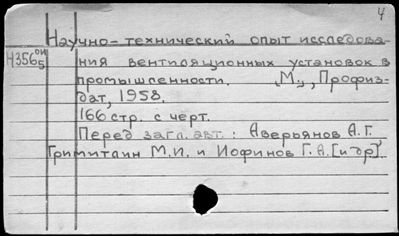 4
Научно-технический опыт исследова-
И4356 ои 5
ния вентиляционных установок в
промышленности. „М.", Профиз-
дат, 1958.
166 стр. с черт.
Перед загл. авт.: Аверьянов А.Г.
Гримитлин М.И. и Иофинов Г.А. [и др]